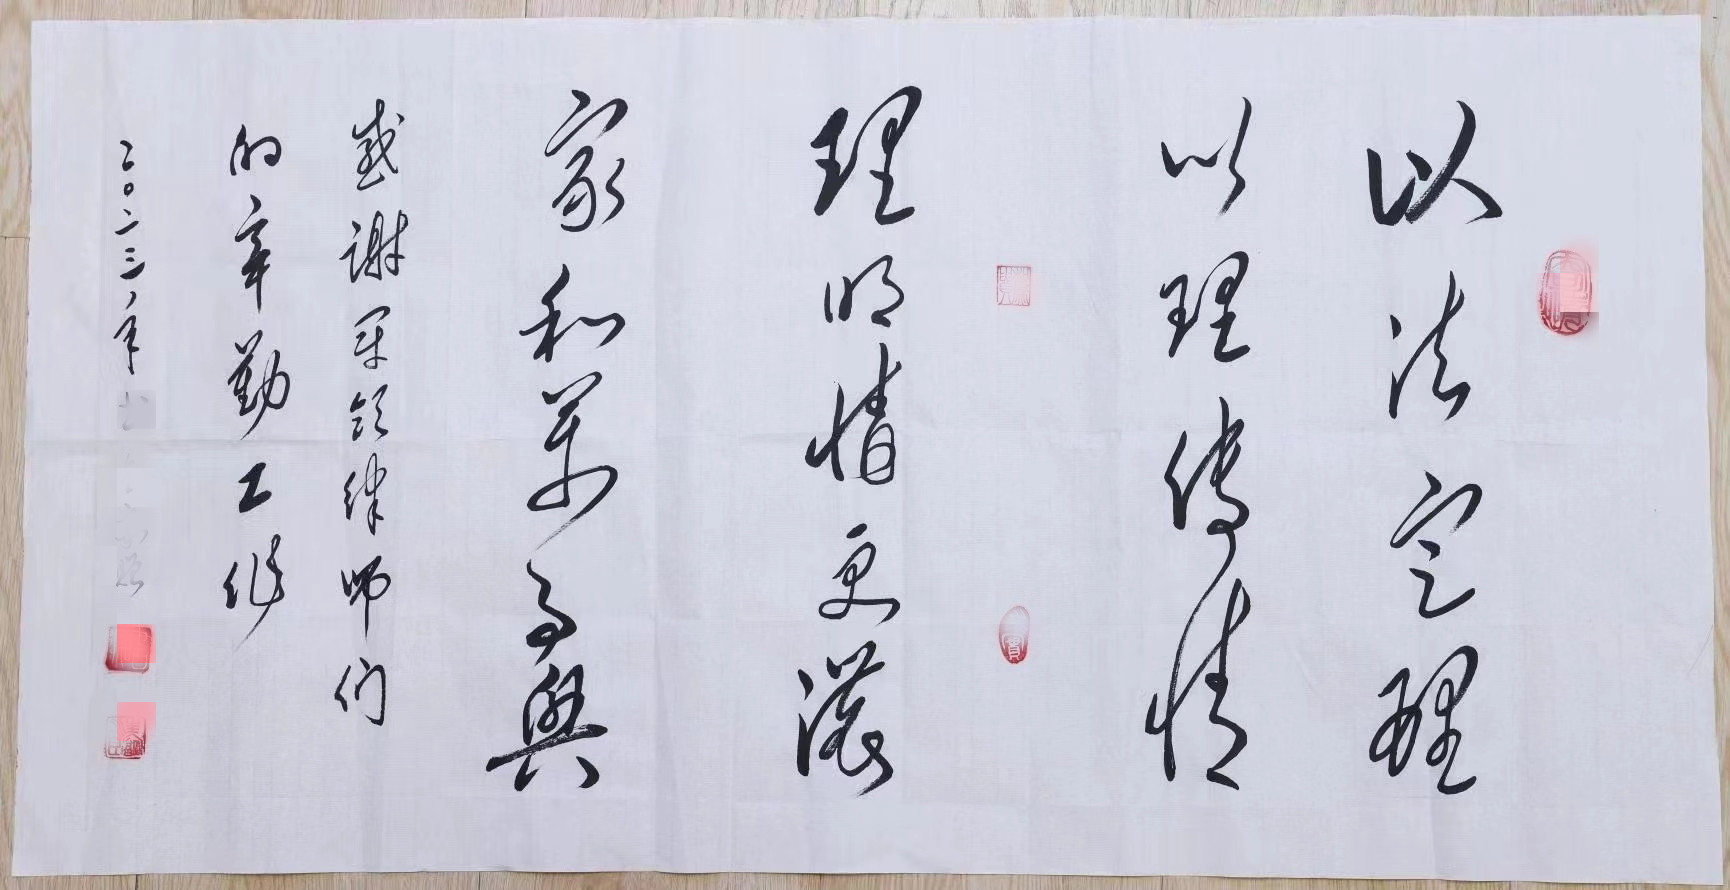 以法定理
以理传情
理明情更浓
家和万事興
感谢军领律师们
的辛勤工作
二〇二三年